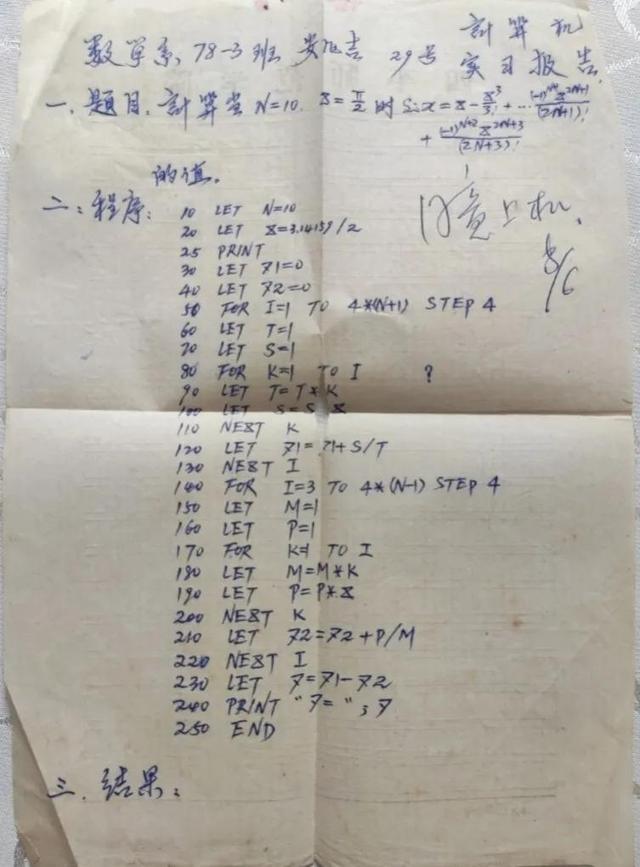 計算机
数学系 78-3班 29号 实习报告
一、题目: 計算当 N=10. X=π/2 时 Sinx = X - X³/3! + … (-1)^N X^(2N+1)/(2N+1)!
+ (-1)^(N+2) X^(2N+3)/(2N+3)!
的值。
二:程序:
10 LET N=10
20 LET X=3.14159/2
25 PRINT
30 LET Z1=0
40 LET Z2=0
50 FOR I=1 TO 4*(N+1) STEP 4
60 LET T=1
70 LET S=1
80 FOR K=1 TO I ?
90 LET T=T*K
100 LET S=S*X
110 NEXT K
120 LET Z1=Z1+S/T
130 NEXT I
140 FOR I=3 TO 4*(N-1) STEP 4
150 LET M=1
160 LET P=1
170 FOR K=1 TO I
180 LET M=M*K
190 LET P=P*X
200 NEXT K
210 LET Z2=Z2+P/M
220 NEXT I
230 LET Z=Z1-Z2
240 PRINT "Z=";Z
250 END
上机.
8/6
三.结果: